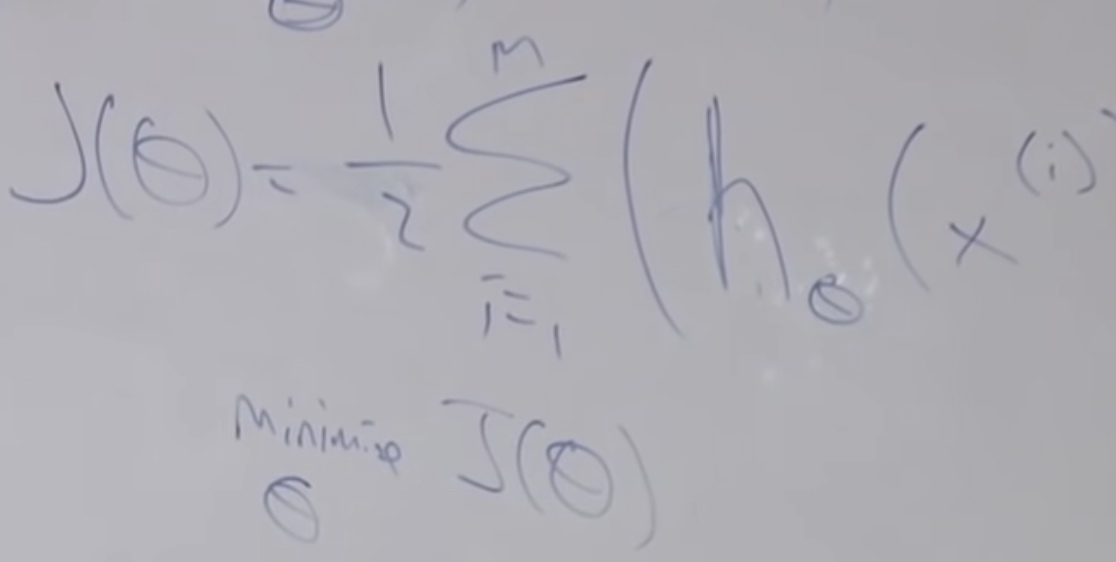 θ
J(θ) = 1/2 Σ_{i=1}^{m} (h_θ(x^{(i)})
minimize_θ J(θ)